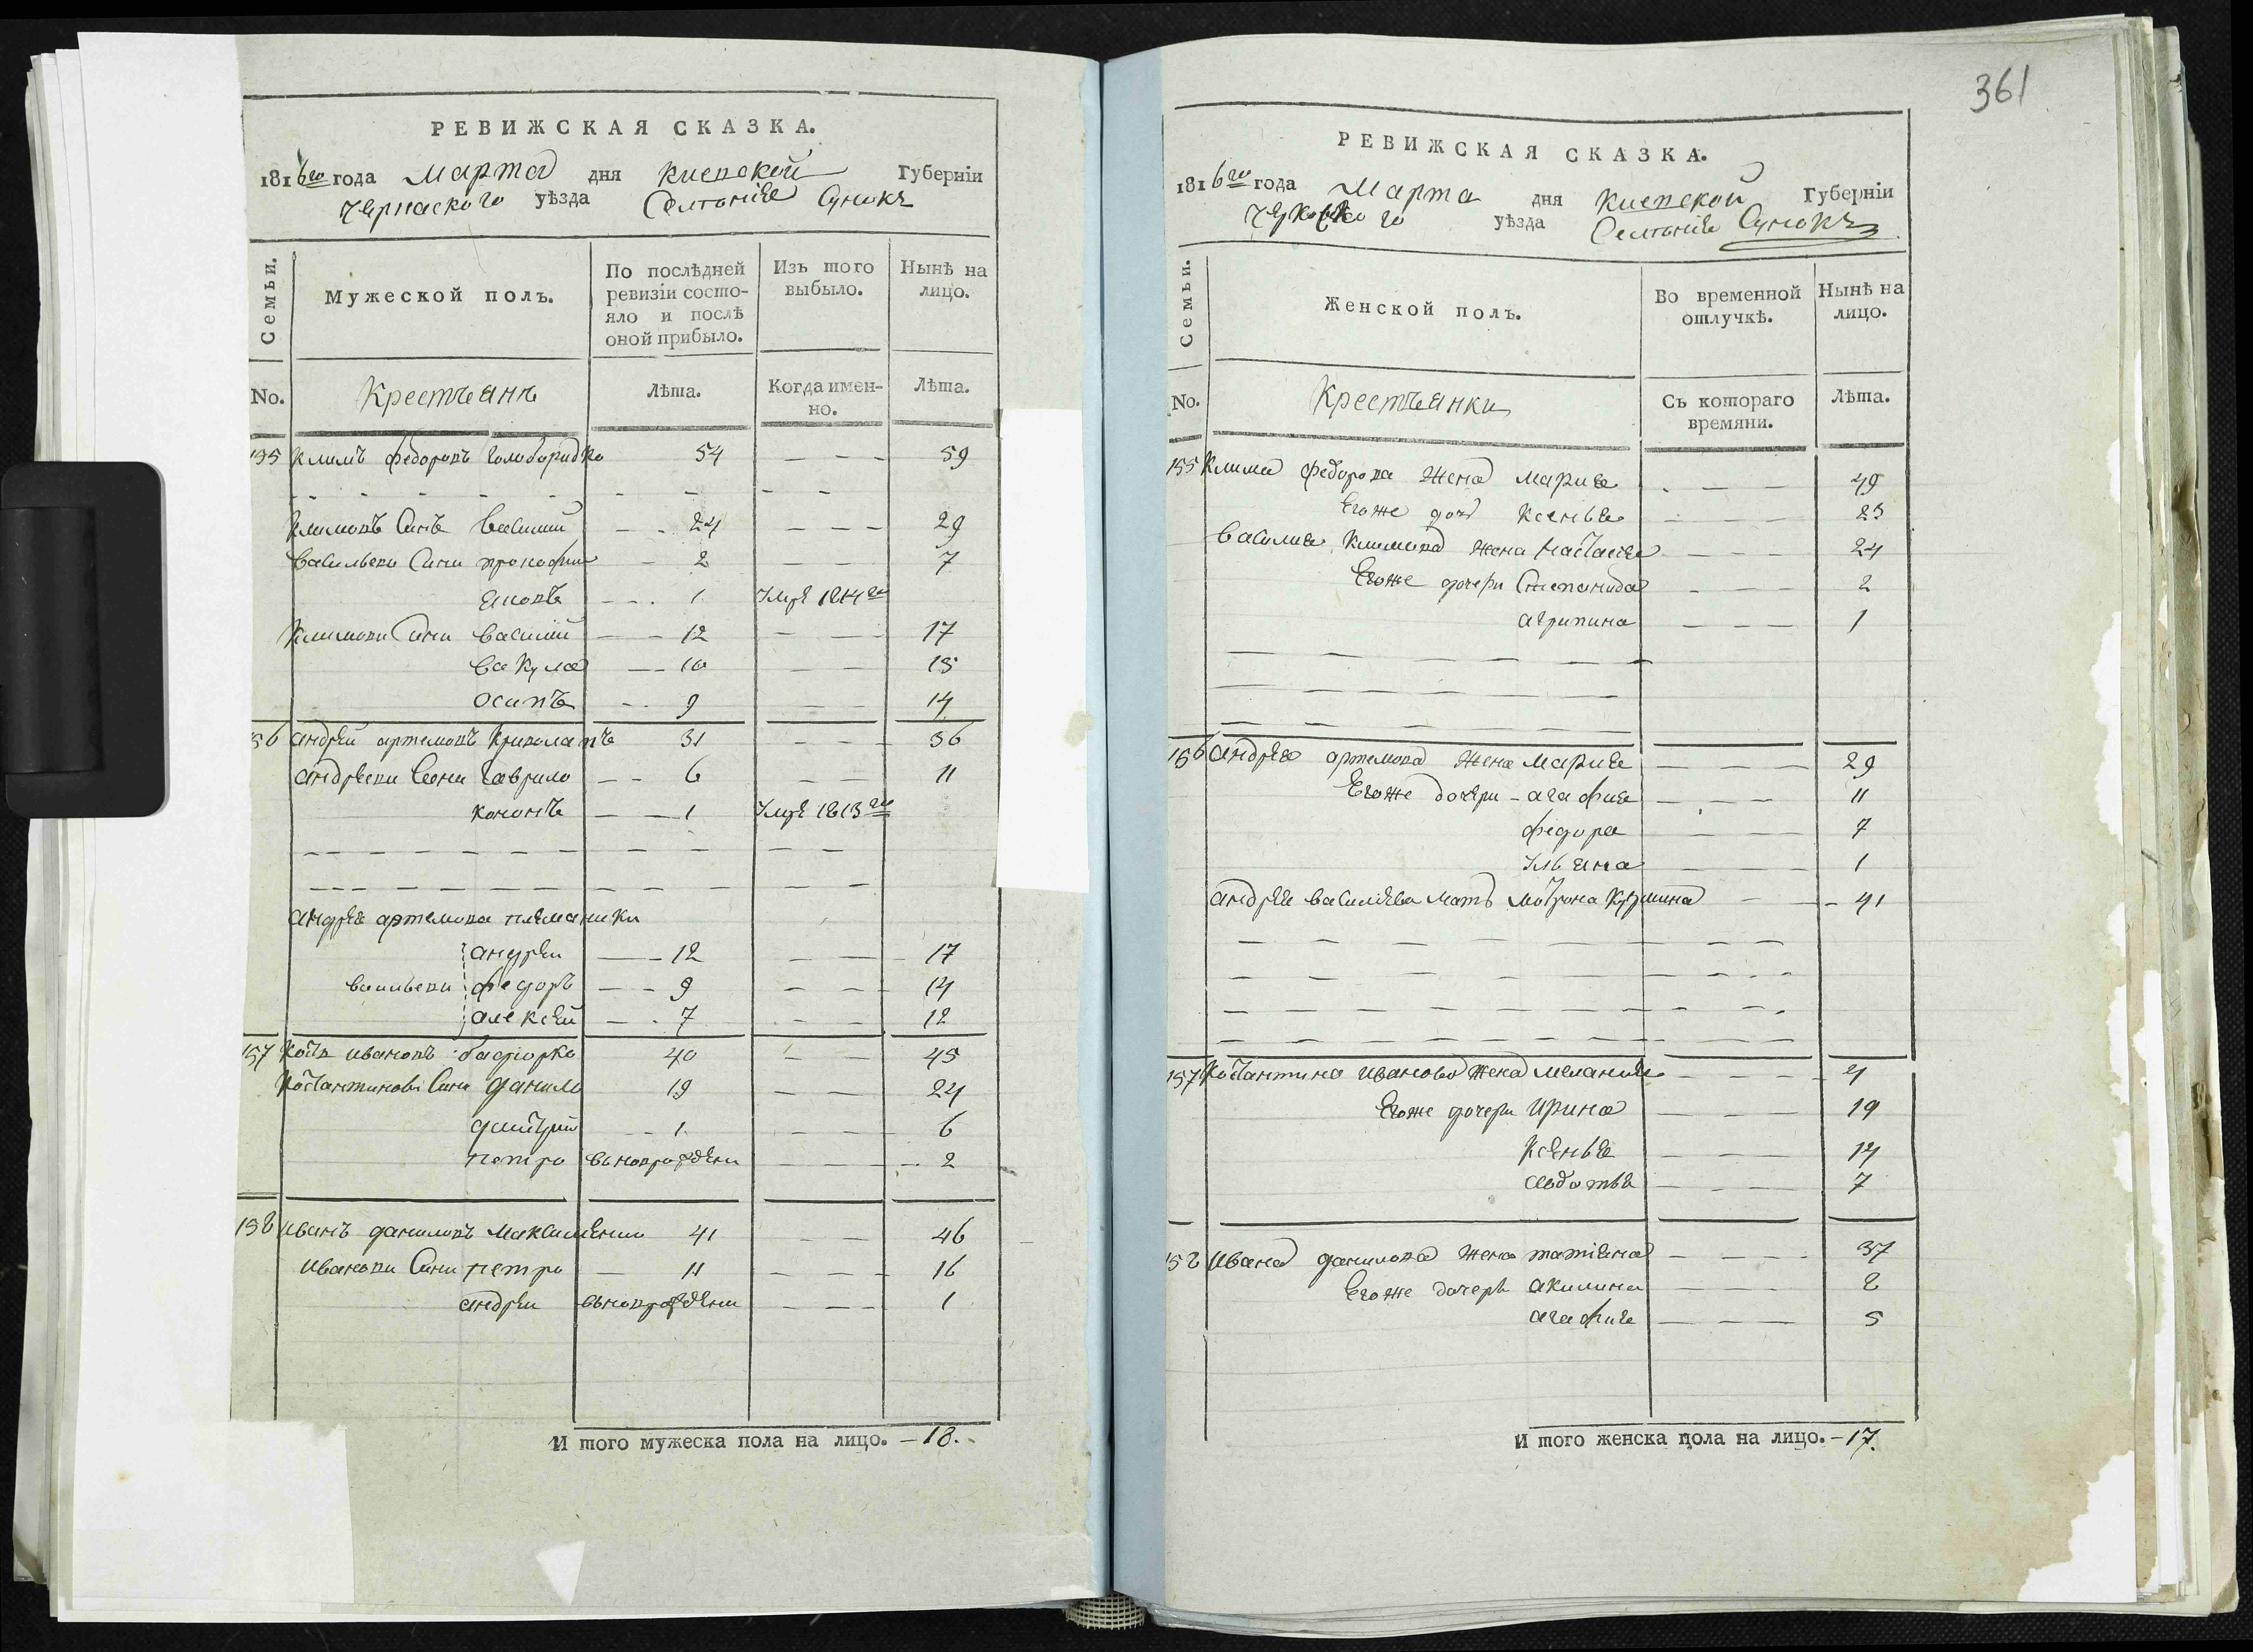 361
РЕВИЖСКАЯ СКАЗКА.
1816го года Марта дня Киевской Губерніи
Черкаского уѣзда Селѣнія Сунокъ
Семьи.
Мужеской полъ.
По послѣдней ревизіи состояло и послѣ оной прибыло.
Изъ того выбыло.
Нынѣ на лицо.
No. Крестъянъ Лѣта. Когда именно. Лѣта.
155 Климъ Федоровъ Голобородко 54 — — — 59
Климовъ Синъ Василий — 24 — — — 29
Васильеви Сини Прокофий — 2 — — 7
Яковъ — 1 Умре 1814го
Климови Сини Василий — 12 — — 17
Вакула — 10 — — 15
Осипъ — 9 — — 14
156 Андрѣй Артемовъ 31 — — 36
Андрѣеви Сини Гаврило — 6 — — 11
Кононъ — 1 Умре 1813го
Андрея Артемова племаники
Андрѣи — 12 — — 17
Васильеви Федоръ — 9 — — 14
Алексѣй — 7 — — 12
157 Иановъ 40 — — 45
Костантинови Сини Данило 19 — — 24
Дмитрий — 1 — — 6
Петро вьновророждени — — 2
158 Иванъ Даниловъ Максименко 41 — — 46
Иванови Сини Петро — 11 — — 16
Андрѣи вьноврождени — — 1
И того мужеска пола на лицо. — 18.
РЕВИЖСКАЯ СКАЗКА.
1816го года Марта дня Киевской Губерніи
Черкаского уѣзда Селѣнія Сунокъ
Семьи.
Женской полъ.
Во временной отлучкѣ.
Нынѣ на лицо.
No. Крестъянки Съ котораго времяни. Лѣта.
155 Клима Федорова жена Мария — — 49
Егоже доч Ксенья — — 23
Василия Климова жена Настасия — — 24
Егоже дочери Степанида — — 2
Агрипина — — 1
156 Андрѣя Артемова жена Мария — — 29
Егоже дочери Агафия — — 11
Федора — — 7
Ульяна — — 1
Андрѣя Василіева мать Мотрона Кузмина — 41
157 Костантина Иванова жена Мелания — —
Егоже дочери Ирина — — 19
Ксѣнья — — 14
Явдотья — — 7
158 Ивана Данилова жена Татіяна — — 37
Егоже дочерь Акилина — — 8
Агафия — — 5
И того женска пола на лицо. — 17.